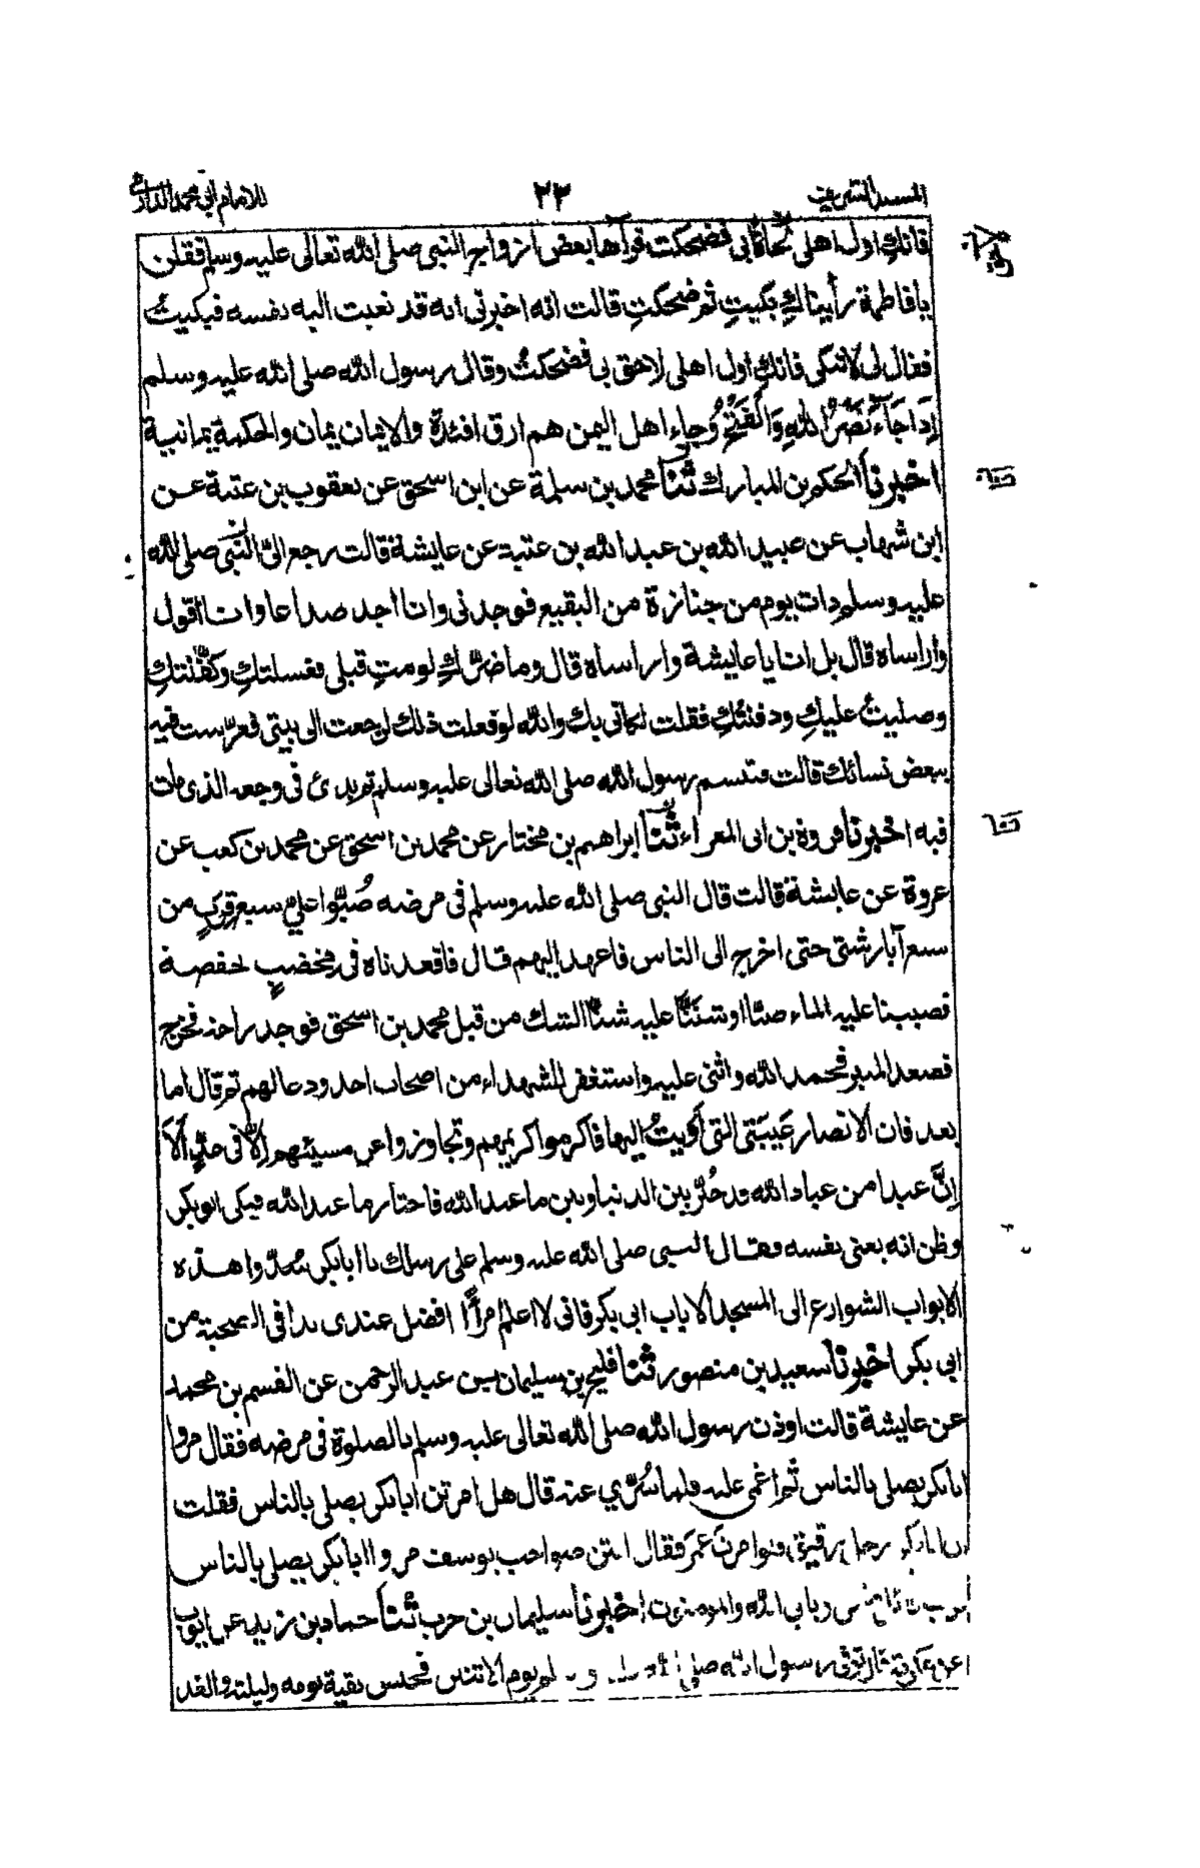 المسند الشريف
٢٣
للامام ابى محمد الدارمى
فانك اول اهلى لحاقا بى فضحكت فرآها بعض ازواج النبى صلى الله تعالى عليه وسلم فقلن
يا فاطمة رأيناكِ بكيتِ ثم ضحكتِ قالت انه اخبرنى انه قد نعيت اليه نفسه فبكيتُ
فقال لى لا تبكى فانكِ اول اهلى لاحق بى فضحكتُ وقال رسول الله صلى الله عليه وسلم
اِذَا جَاءَ نَصْرُ اللهِ وَالْفَتْحُ وجاء اهل اليمن هم ارق افئدة والايمان يمان والحكمة يمانية
اخبرنا الحكم بن المبارك ثنا محمد بن سلمة عن ابن اسحق عن يعقوب بن عتبة عن
ابن شهاب عن عبيد الله بن عبد الله بن عتبة عن عايشة قالت رجع الىّ النبى صلى الله
عليه وسلم ذات يوم من جنازة من البقيع فوجدنى وانا اجد صداعا وانا اقول
وأراساه قال بل انا يا عايشة واراساه قال وما ضرّكِ لو متِ قبلى فغسلتكِ وكفّنتكِ
وصليتُ عليكِ ودفنتكِ فقلت لكانى بك والله لو فعلت ذلك لرجعت الى بيتى فعرّست فيه
ببعض نسائك قالت فتبسم رسول الله صلى الله تعالى عليه وسلم ثم بدئ فى وجعه الذى مات
فيه اخبرنا فروة بن ابى المعراء ثنا ابراهيم بن مختار عن محمد بن اسحق عن محمد بن كعب عن
عروة عن عايشة قالت قال النبى صلى الله عليه وسلم فى مرضه صُبّوا علىّ سبع قِرَبٍ من
سبع آبار شتى حتى اخرج الى الناس فاعهد اليهم قال فاقعدناه فى مخضبٍ لحفصة
فصببنا عليه الماء صبّا او شننّا عليه شنّا الشك من قبل محمد بن اسحق فوجد راحة فخرج
فصعد المنبر فحمد الله واثنى عليه واستغفر للشهداء من اصحاب احد ودعا لهم ثم قال اما
بعد فان الانصار عَيبَتى التى أويتُ اليها فاكرموا كريمهم وتجاوزوا عن مسيئهم اِلّا فى حدٍّ اَلَا
اِنَّ عبدا من عباد الله قد خُيّر بين الدنيا وبين ما عند الله فاختار ما عند الله فبكى ابو بكر
وظن انه يعنى نفسه فقال النبى صلى الله عليه وسلم على رسلك يا ابا بكر سُدّوا هذه
الابواب الشوارع الى المسجد الا باب ابى بكر فانى لا اعلم امرأً افضل عندى يدا فى الصحبة من
ابى بكر اخبرنا سعيد بن منصور ثنا فليح بن سليمان عن عبد الرحمن عن القسم بن محمد
عن عايشة قالت اوذن رسول الله صلى الله تعالى عليه وسلم بالصلوة فى مرضه فقال مروا
ابا بكر يصلى بالناس ثم اغمى عليه فلما سُرّي عنه قال هل امرتن ابا بكر يصلى بالناس فقلت
ان ابا بكر رجل رقيق فلو امرتَ عمرَ فقال انتن صواحب يوسف مروا ابا بكر يصلى بالناس
ويابى الله والمومنون اخبرنا سليمان بن حرب ثنا حماد بن زيد عن ايوب
عن عكرمة قال توفى رسول الله صلى الله عليه وسلم يوم الاثنين فحبس بقية يومه وليلته والغد